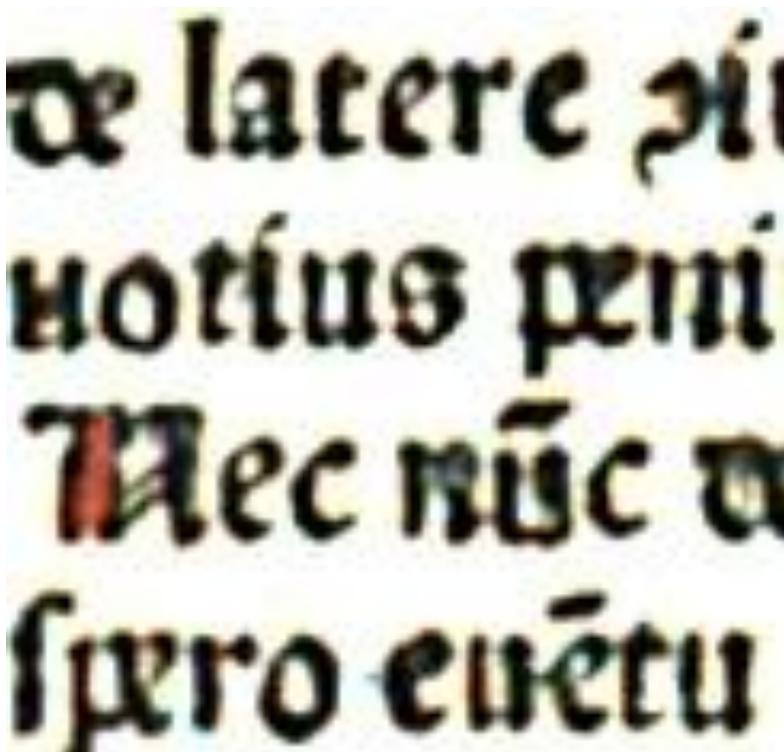 de latere
notius peni
Nec nūc
spero euētu